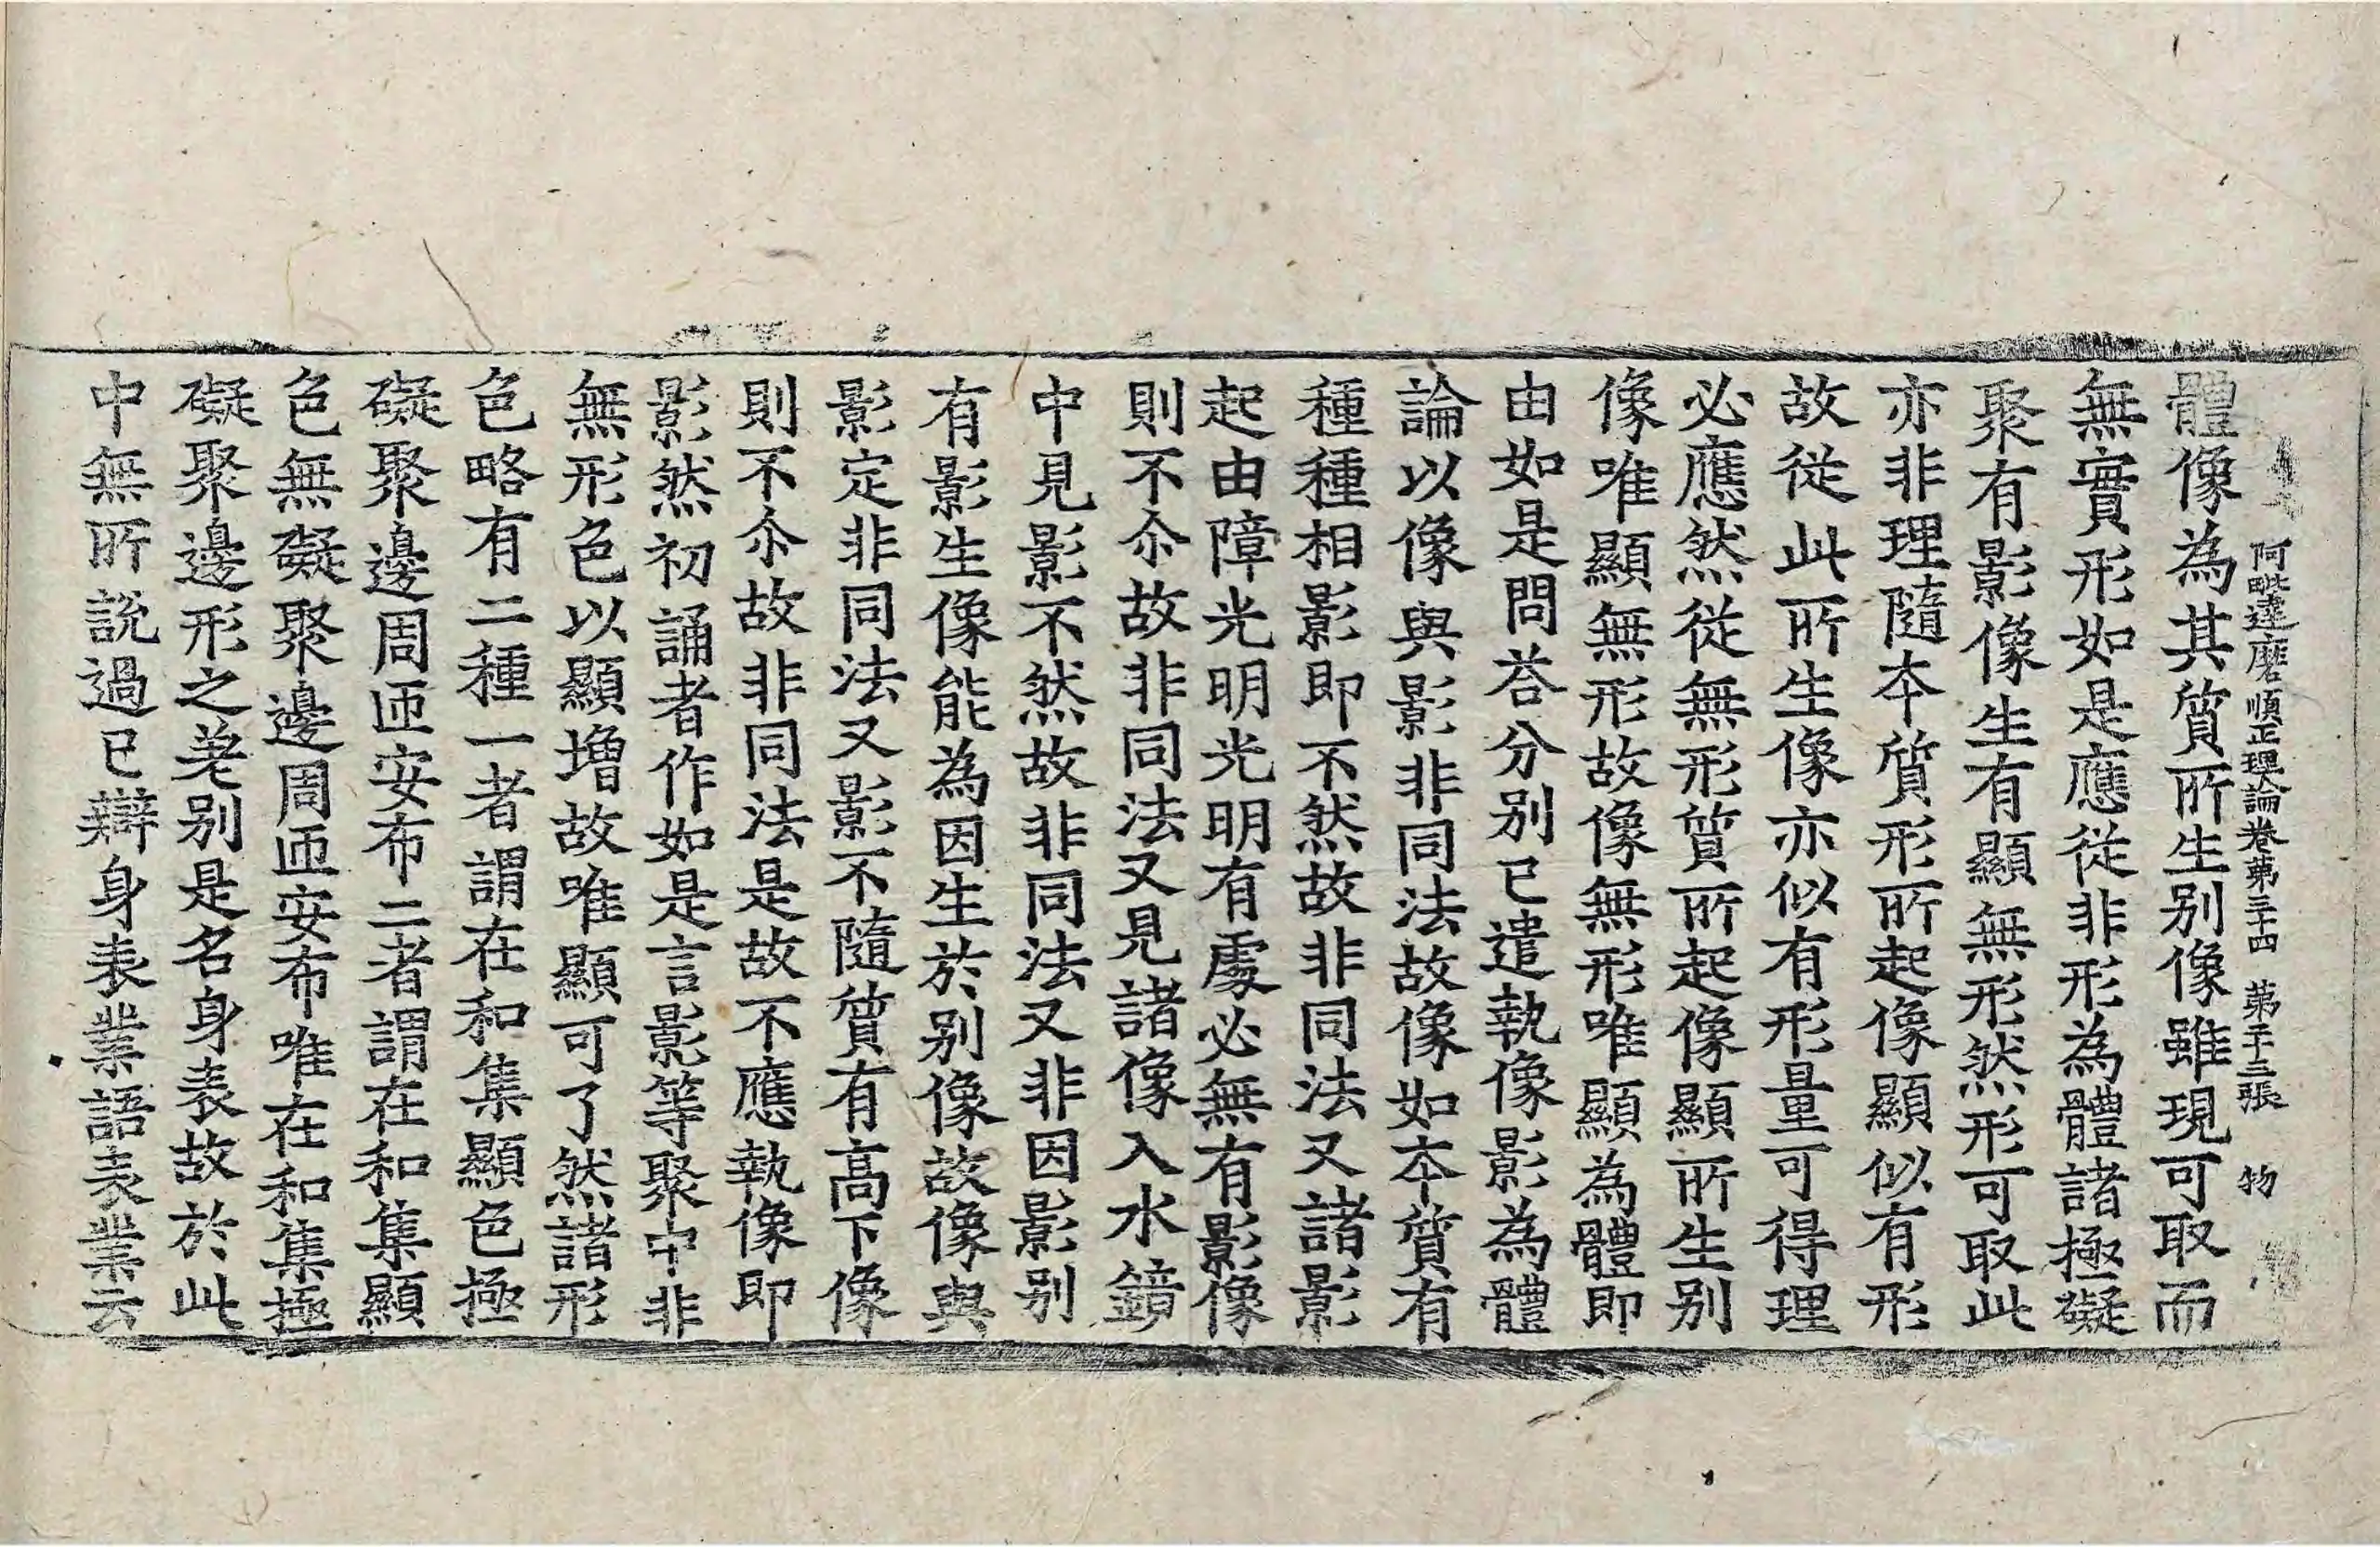 阿毗達磨順正理論卷苐三十四 苐十三張 物
體像為其質所生別像雖現可取而
無實形如是應從非形為體諸極礙
聚有影像生有顯無形然形可取此
亦非理隨夲質形所起像顯似有形
故從此所生像亦似有形量可得理
必應然從無形質所起像顯所生別
像唯顯無形故像無形唯顯為體即
由如是問荅分別已遣執像影為體
論以像與影非同法故像如夲質有
種種相影即不然故非同法又諸影
起由障光明光明有處必無有影像
則不尒故非同法又見諸像入水鏡
中見影不然故非同法又非因影別
有影生像能為因生於別像故像與
影定非同法又影不隨質有高下像
則不尒故非同法是故不應執像即
影然初誦者作如是言影等聚中非
無形色以顯增故唯顯可了然諸形
色略有二種一者謂在和集顯色極
礙聚邊周迊安布二者謂在和集顯
色無礙聚邊周迊安布唯在和集極
礙聚邊形之差別是名身表故於此
中無所說過已辯身表業語表業云